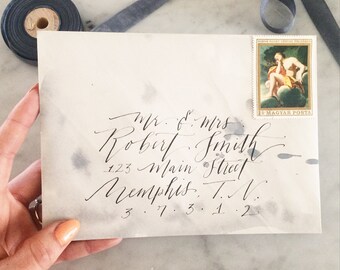 MAGYAR POSTA
Mr. & Mrs
Robert Smith
123 Main Street
Memphis. T.N.
3.7.3.1.2